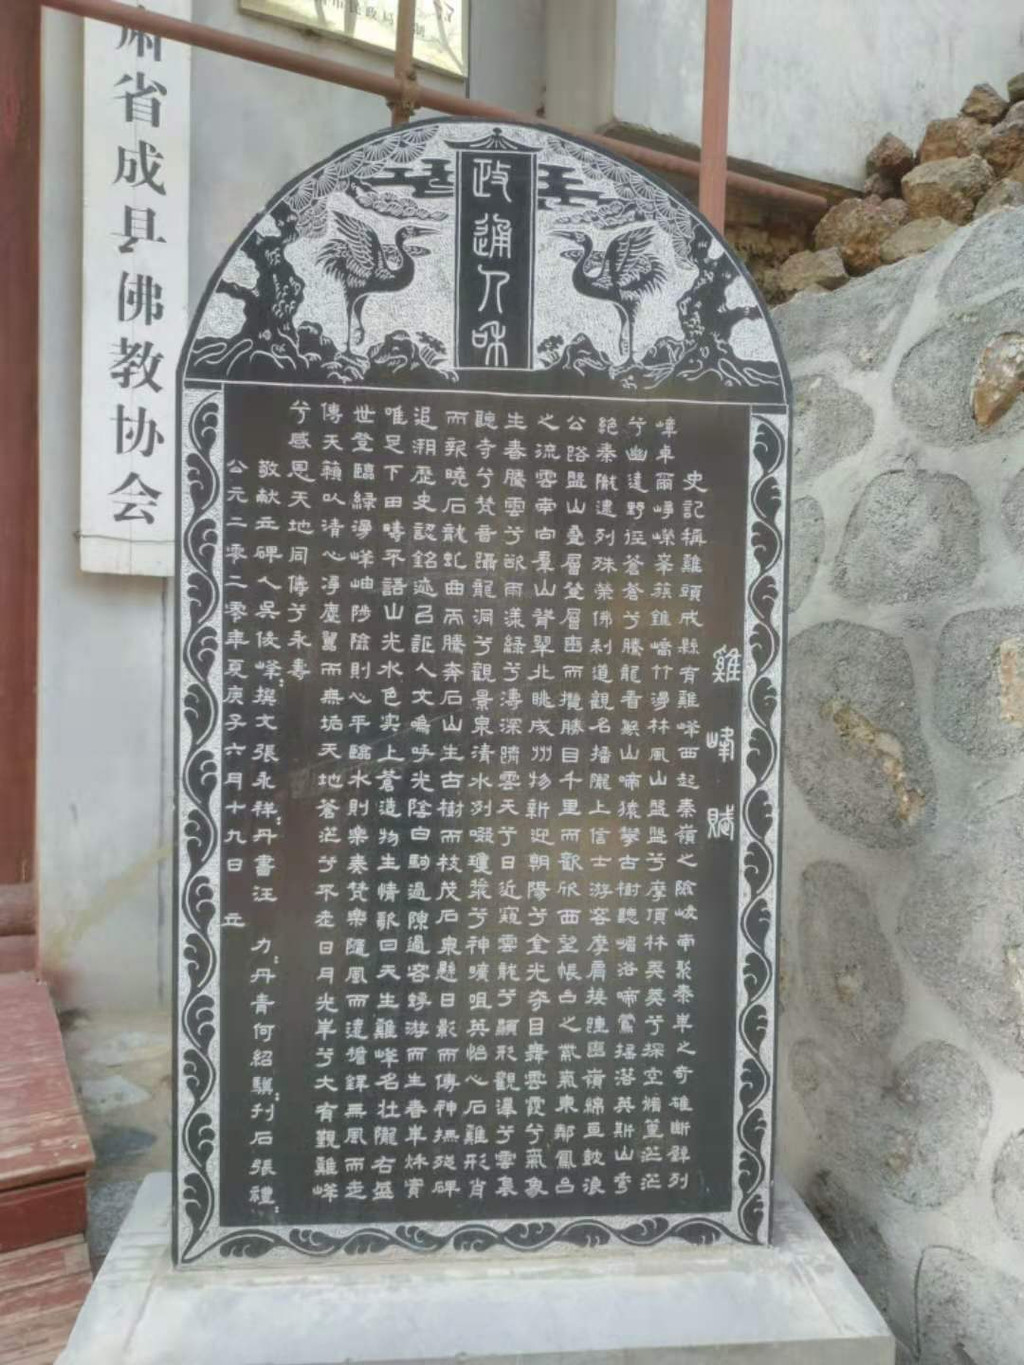 肃省成县佛教协会
政通人和
雞峰賦
史記稱雞頭成縣有雞峰西起秦嶺之陰岐南眾泰岸之奇碓断錦列
嶂卓爾崢嶸峯蔟錐嶠竹湯林風山盤盤兮摩頂林莫莫兮探空脩篁茫茫
兮幽遠野徑蒼蒼兮騰龍看象山啼猿攀古樹聽嵋洛啼鶯搖落英斯山秀
絕秦隴遺列殊榮佛刹道觀名播隴上信士游客摩肩接踵幽嶺綿亘歎浪
公路盤山疊層登層巒而攬勝目千里而歡欣西望悵台之紫氣東鄰鳳台
之流雲南向羣山脊翠北眺成州物新迎朝陽兮金光夺目舞雲霞兮氣象
生春騰雲兮歃雨漾綠兮溥深躋雲天兮日近窺雲龍兮顯形觀瀑兮雲裊
聽寺兮梵音躡龍洞兮觀景泉清水冽啜瓊漿兮神曠咀英怡心石雞形肖
而報曉石龍虬曲而騰奔石山生古樹而枝茂石泉懸日影而傳神撫殘碑
追溯歷史認銘迹已証人文嗚呼光陰白駒過隙過客蜉游而生春华秋實
唯足下田疇不語山光水色实上蒼造物生情歌曰天生雞峰名壮隴右盛
世登臨綠湯峰岫陟險則心平臨水則樂奏梵樂隨風而遠檐鐸無風而走
傳天籟以清心凈塵囂而無垢天地蒼茫兮不老日月光华兮大有觀雞峰
兮感恩天地同俦兮永壽
敬献立碑人吳俊峰撰文張永祥丹書汪 力丹青何紹騏刊石張禮
公元二零二零年夏庚子六月十九日 立